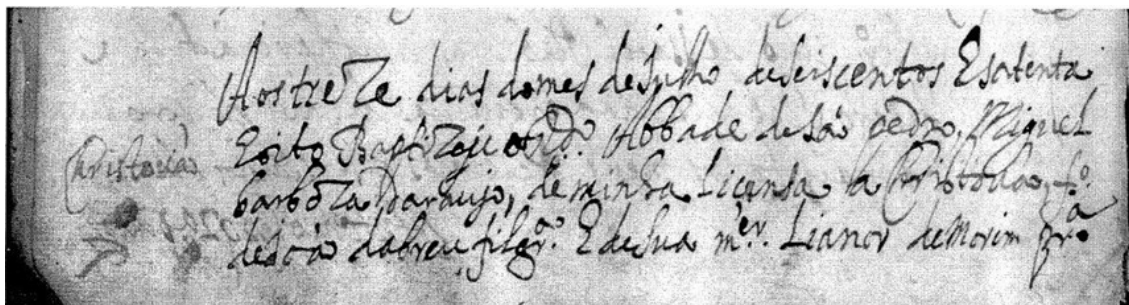 Aos treze dias do mes de Julho de seiscentos E satenta
E oito Baptizou o Rdo. Abbade de São pedro, Miguel
Christovão
barboza Daraujo, de minha Licensa a Christovão, fo.
de João dabreu filgra. E de sua mer. Lianor de Morim